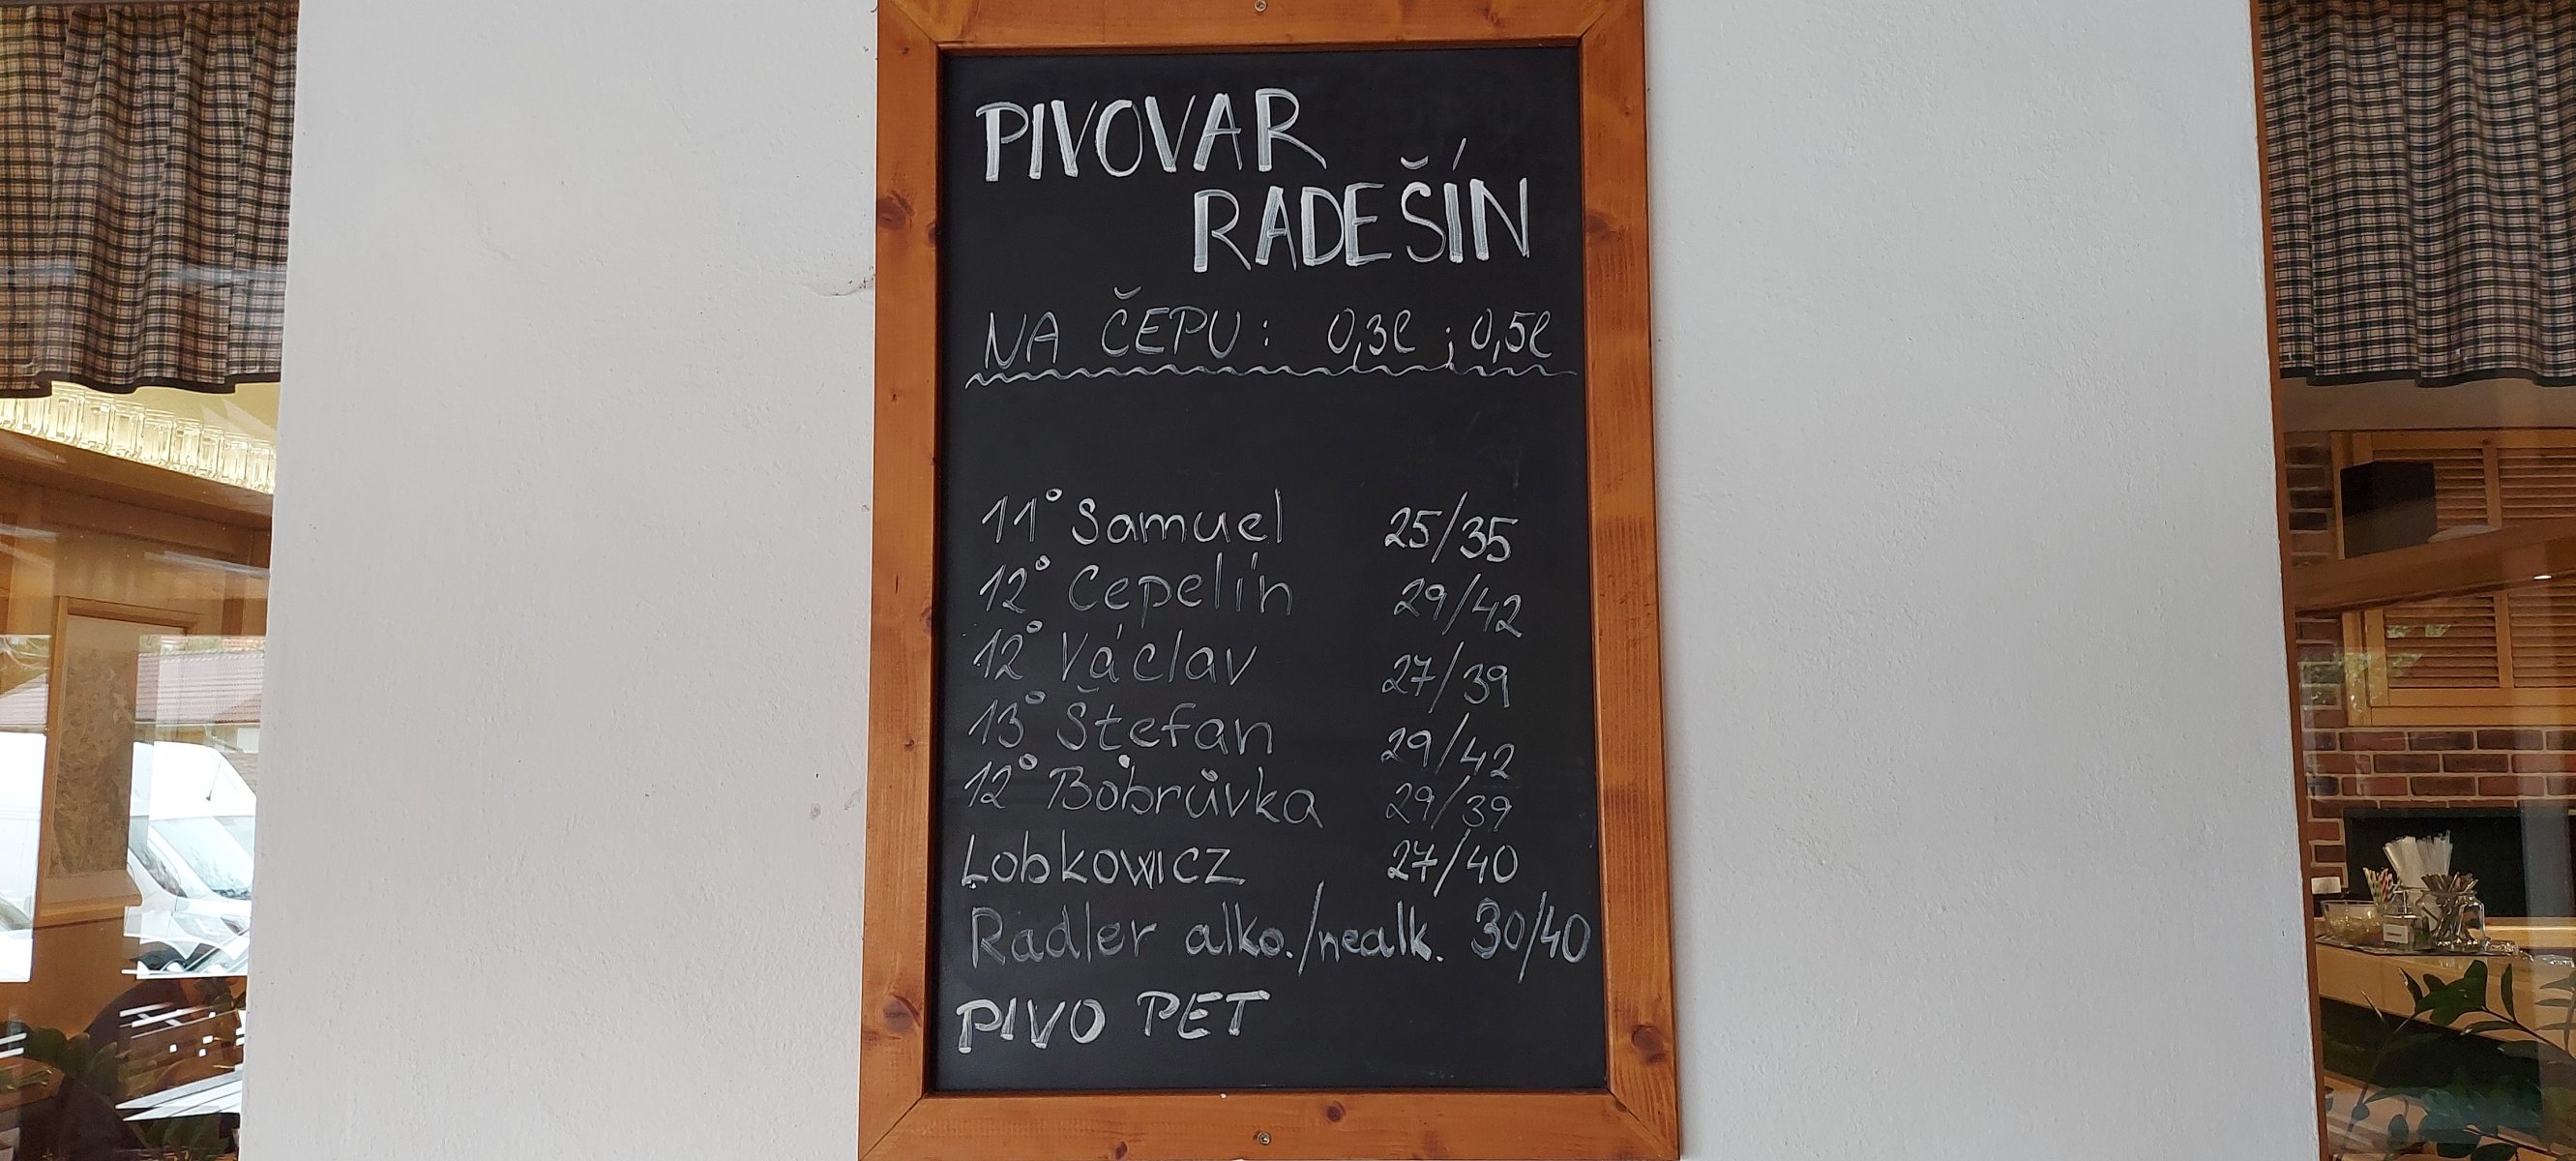 PIVOVAR
RADEŠÍN
NA ČEPU: 0,3l ; 0,5l
11° Samuel 25/35
12° Cepelín 29/42
12° Václav 27/39
13° Štefan 29/42
12° Bobrůvka 29/39
Lobkowicz 27/40
Radler alko./nealk. 30/40
PIVO PET